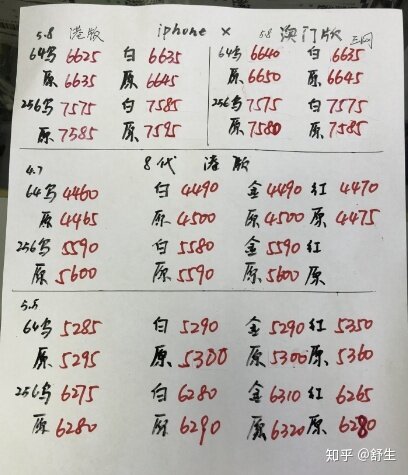 5.8 港版 iphone X 5.8 澳门版 三网
64乌 6625 白 6635 64乌 6640 白 6635
原 6635 原 6645 原 6650 原 6645
256乌 7575 白 7585 256乌 7575 白 7575
原 7585 原 7595 原 7580 原 7585
4.7 8代 港版
64乌 4460 白 4490 金 4490 红 4470
原 4465 原 4500 原 4500 原 4475
256乌 5590 白 5580 金 5590 红
原 5600 原 5590 原 5600 原
5.5
64乌 5285 白 5290 金 5290 红 5350
原 5295 原 5300 原 5300 原 5360
256乌 6275 白 6280 金 6310 红 6265
原 6280 原 6290 原 6320 原 6280
知乎 @舒生